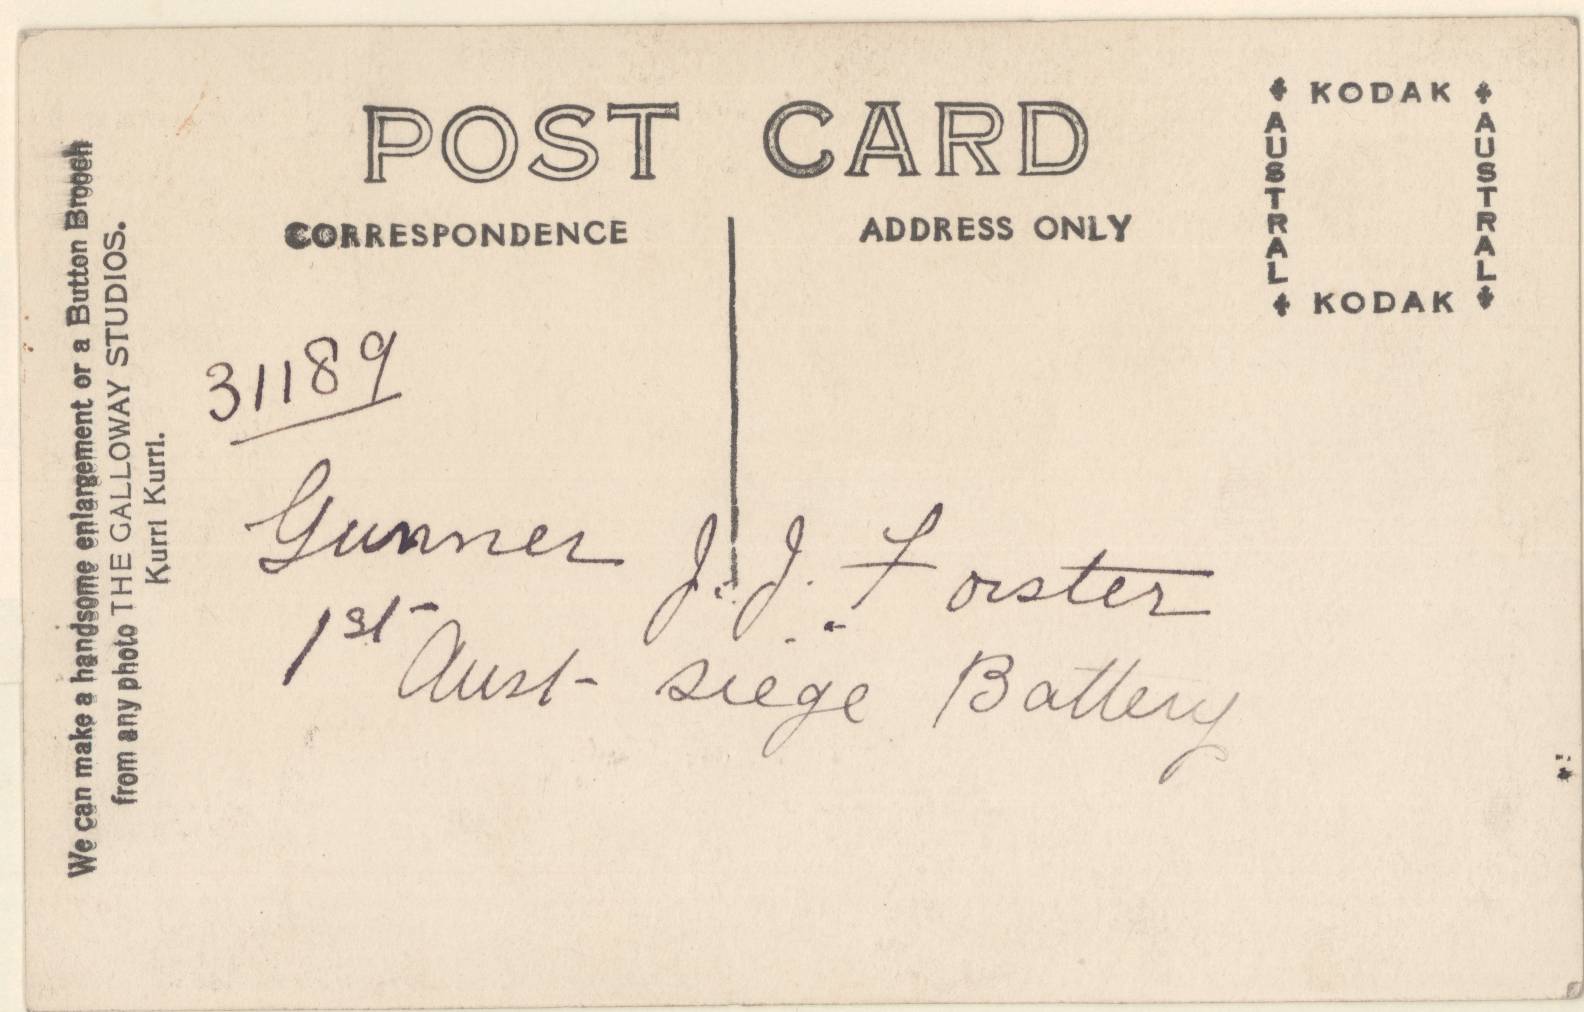 POST CARD
CORRESPONDENCE
ADDRESS ONLY
KODAK
AUSTRAL
AUSTRAL
KODAK
We can make a handsome enlargement or a Button Brooch
from any photo THE GALLOWAY STUDIOS.
Kurri Kurri.
31189
Gunner J. J. Forster
1st Aust siege Battery